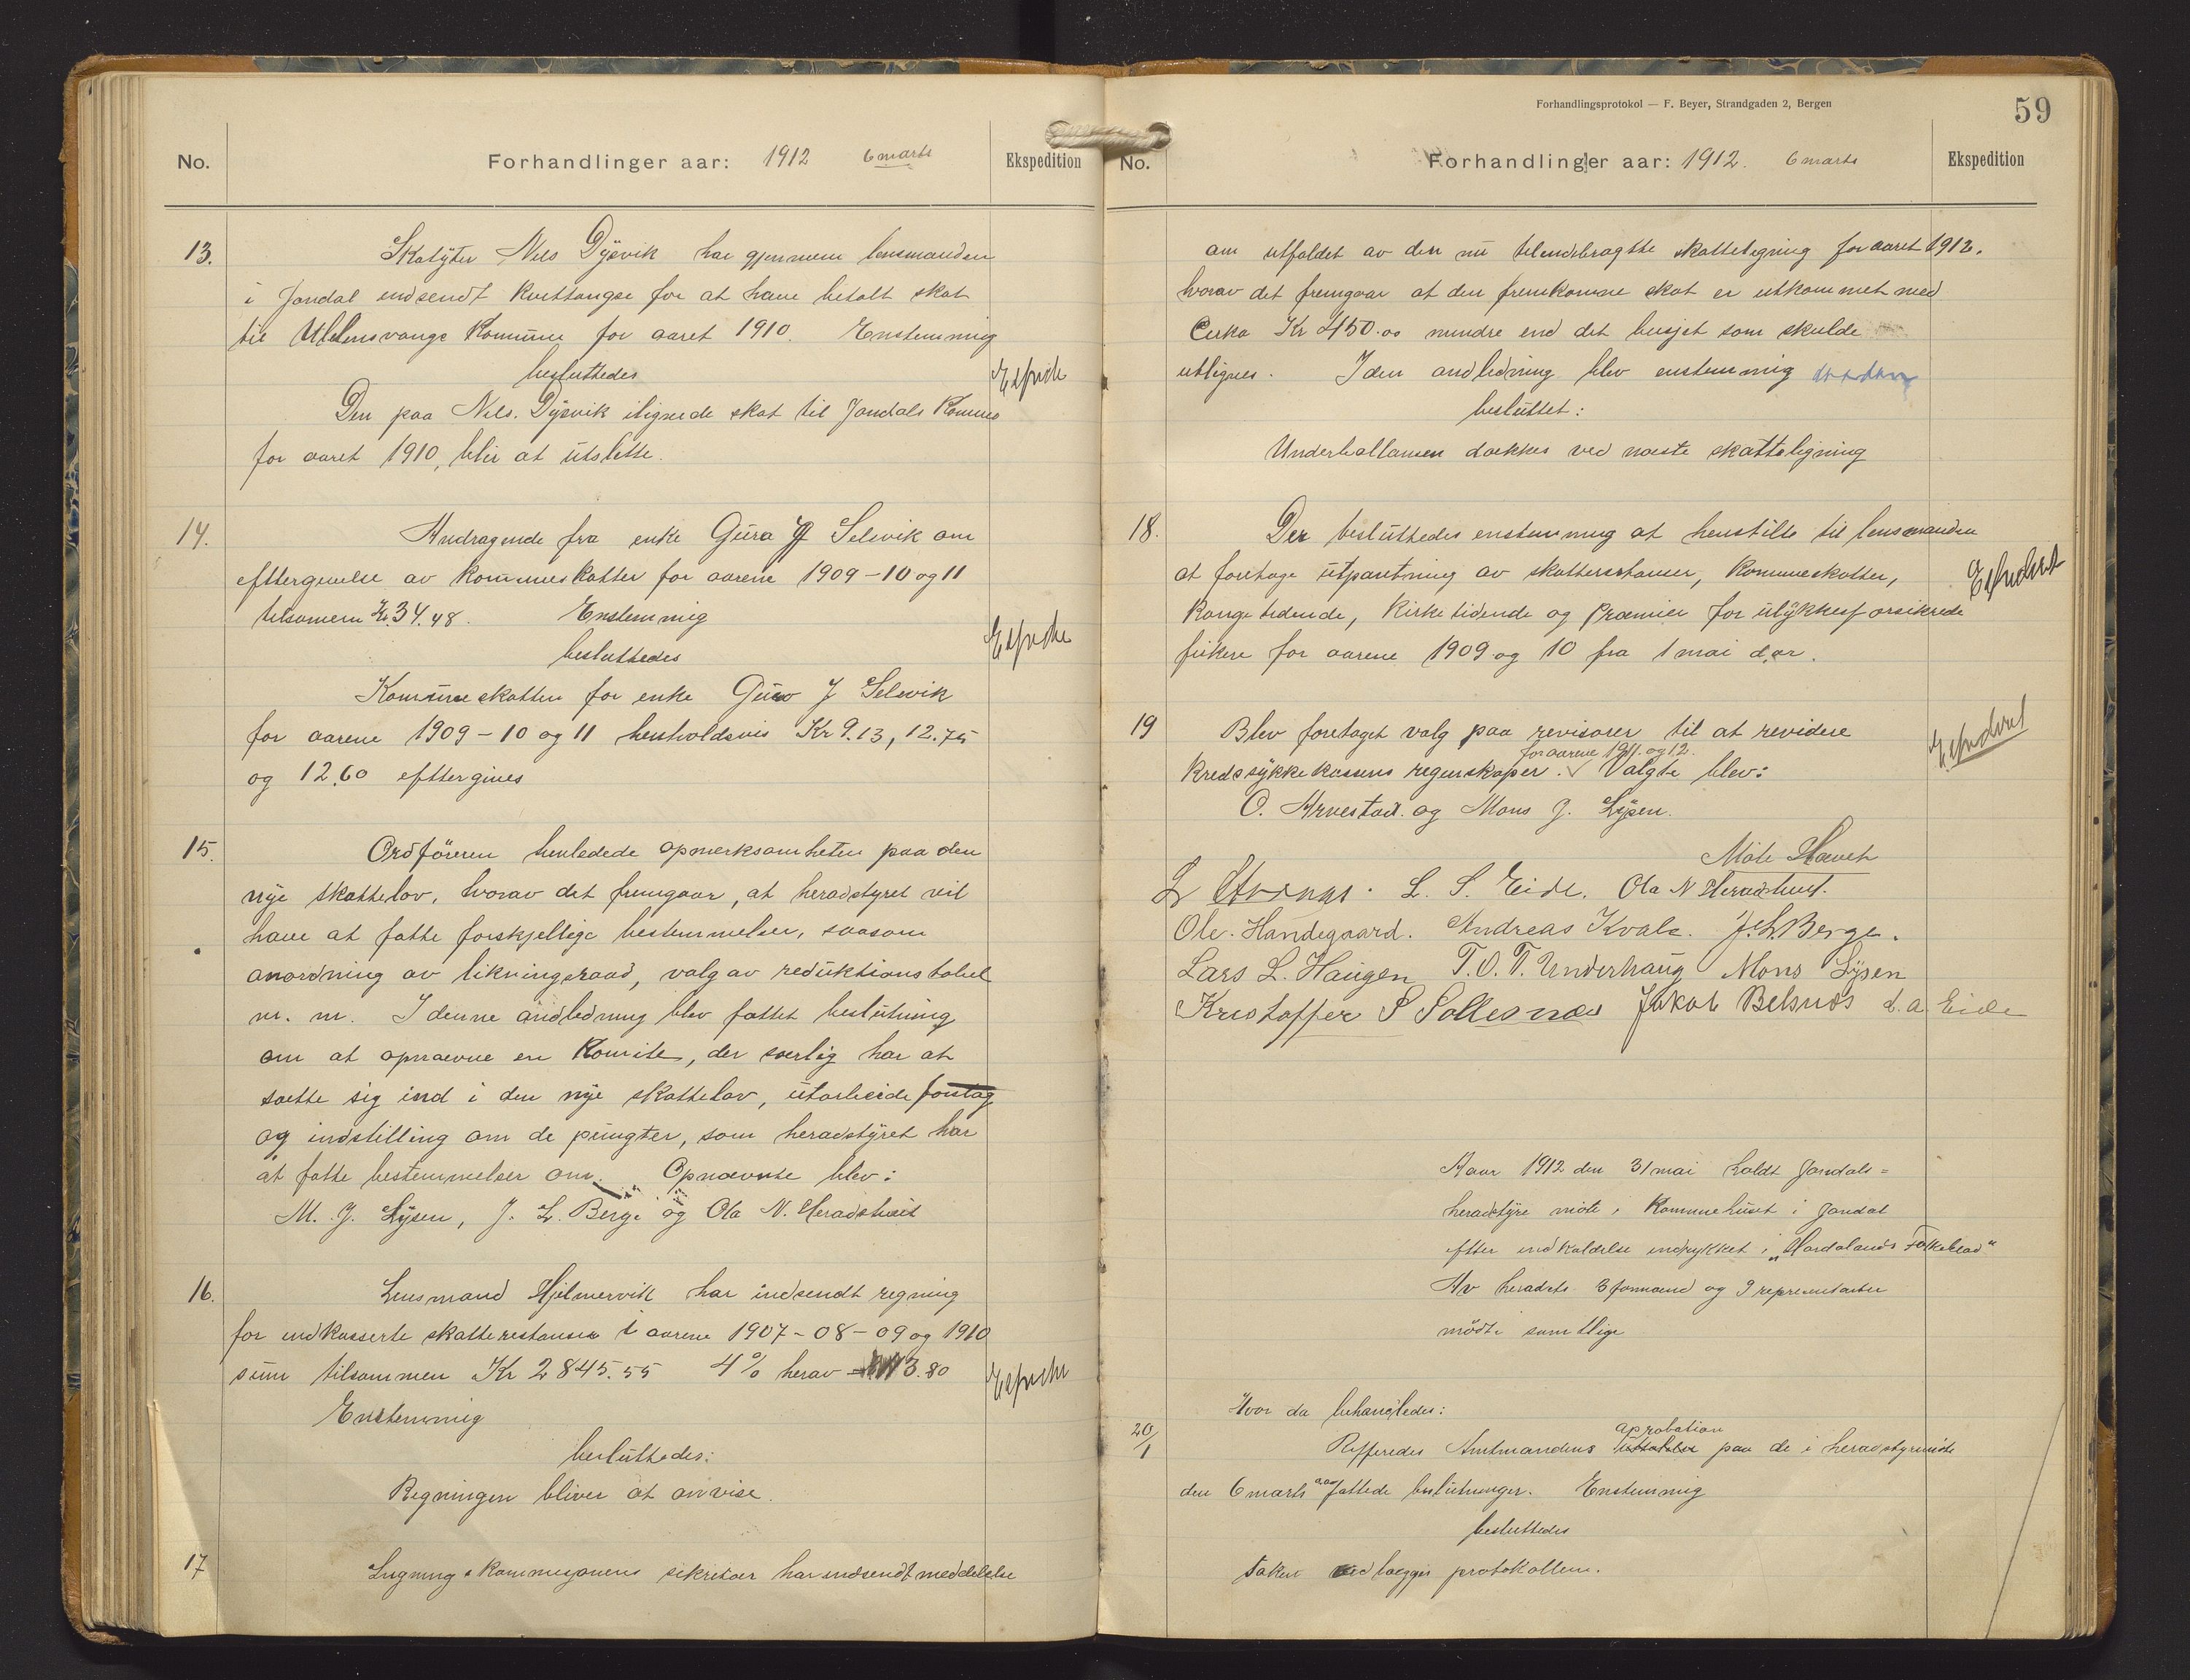 No.
Forhandlinger aar: 1912 6 marts
Ekspedition
13.
Skatyter Nils Dysvik har gjennem lensmanden
i Jondal indsendt kvittangse for at have betalt skat
til Ullensvangs Komune for aaret 1910. Enstemmig
besluttedes
Den paa Nils. Dysvik ilignede skat til Jondals Komune
for aaret 1910, blir at utslette.
14.
Andragende fra enke Guro J Selsvik om
eftergivelse av komuneskatter for aarene 1909-10 og 11
tilsamen Kr. 34.48. Enstemmig
besluttedes
Komuneskatten for enke Guro J Selsvik
for aarene 1909-10 og 11 henholdsvis Kr 9.13, 12.75
og 12.60 eftergives
15.
Ordföreren henledede opmerksomheten paa den
nye skattelov, hvorav det fremgaar, at heradstyret vil
have at fatte forskjellige bestemmelser, saasom
anordning av likningsraad, valg av reduktionstabel
m. m. I denne andledning blev fattet beslutning
om at opnævne en Komite, der særlig har at
sætte sig ind i den nye skattelov, utarbeide forslag
og indstilling om de pungter, som heradstyret har
at fatte bestemmelser om. Opnævnte blev:
M. J. Lysen, J. L. Berge og Ola N. Heradstveit
16.
Lensmand Hjelmervik har indsendt regning
for indkasserte skatterestanser i aarene 1907-08-09 og 1910
sum tilsammen Kr 2845.55 4% herav = 113.80
Enstemmig
besluttedes:
Regningen bliver at anvise.
17
Ligningskommisjonens sekretær har indsendt meddelelse
Forhandlingsprotokol — F. Beyer, Strandgaden 2, Bergen
59
No.
Forhandlinger aar: 1912. 6 marts
Ekspedition
om utfaldet av den nu tilendebragte skatteligning for aaret 1912.
hvorav det fremgaar at den fremkomne skat er utkommet med
Cirka Kr 450.00 mindre end det busjet som skulde
utlignes. I den andledning blev enstemmig
besluttet:
Underballansen dækkes ved næste skatteligning
18.
Der besluttedes enstemmig at henstille til lensmanden
at foretage utpantning av skatterestanser, Komuneskatter,
Kongetidende, Kirketidende og Præmier for ulykkesforsikrede
fiskere for aarene 1909 og 10 fra 1 mai d.ar.
19
Blev foretaget valg paa revisorer til at revidere
for aarene 1911. og 12.
Kredssykkekassens regnskaper. Valgte blev:
O. Arvestad. og Mons J. Lysen.
Möte Hævet
L. S. Eide. Ola N Heradstveit.
Ole. Handegaard. Andreas Kvale. J. L. Berge.
Lars L. Haugen T. O. T. Underhaug Mons Lysen
Kristoffer S Sollesnæs Jakob Belsnæs L. A. Eide
Aar 1912 den 31 mai holdt Jondals=
heradstyre möte i Komunehuset i Jondal
efter indkaldelse indrykket i „Hordalands Folkeblad"
Av heradets 3 formænd og 9 representanter
mödte samtlige
Hvor da behandledes:
20/1
aprobation
Refferedes Amtmandens paa de i heradstyremöte
den 6 marts aar fattede beslutninger. Enstemmig
besluttedes
Saken vedlægges protokollen.